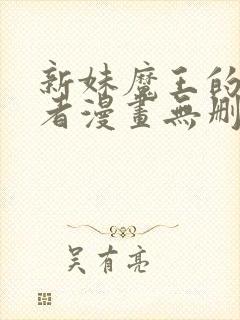 新妹魔王的
者漫畫無刪
吴有亮